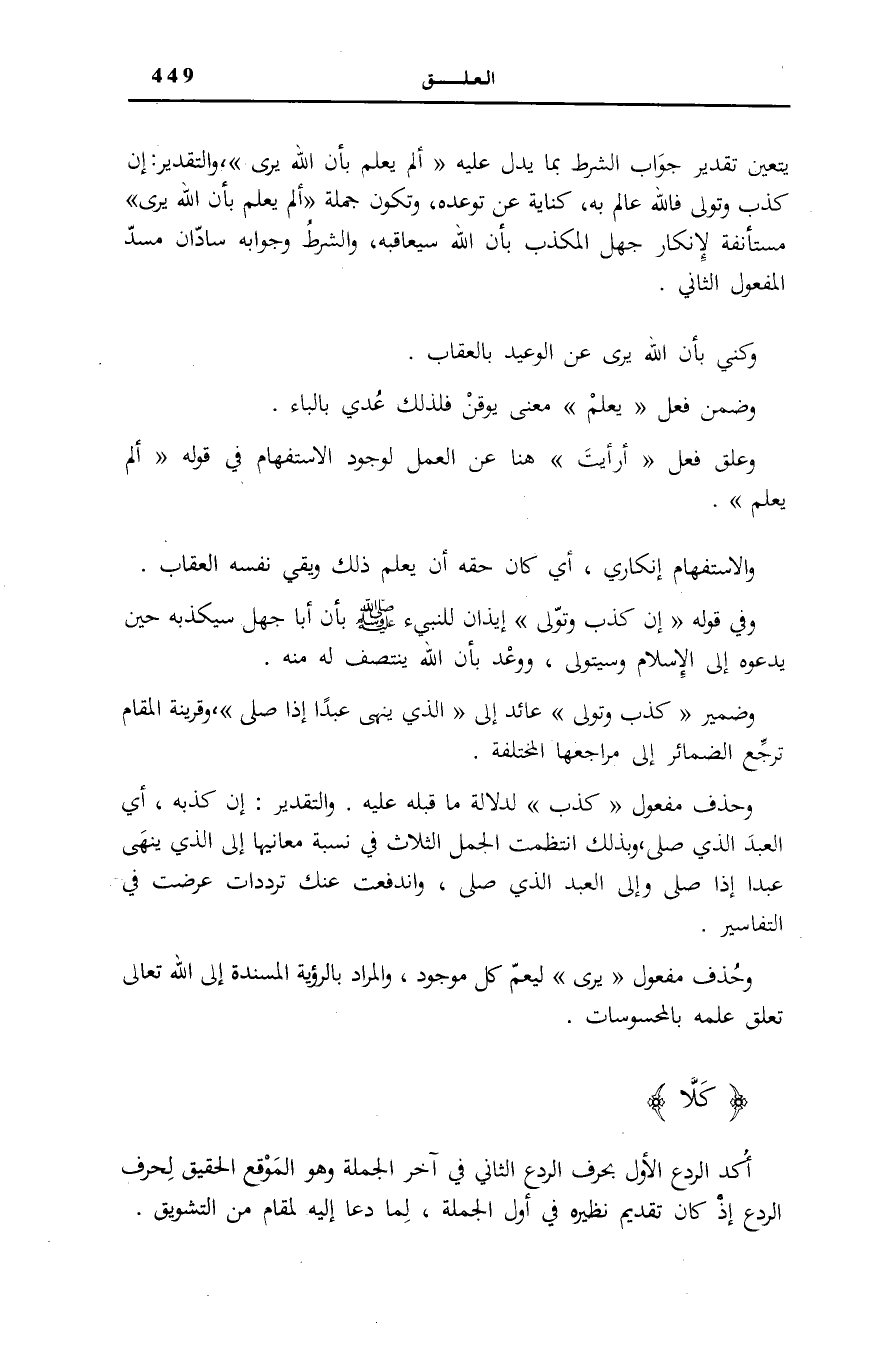 العلـــق 449
يتعين تقدير جوَاب الشرط بما يدل عليه « ألم يعلم بأن الله يرى »،والتقدير: إن
كذب وتولى فالله عالم به، كناية عن توعده، وتكون جملة «ألم يعلم بأن الله يرى»
مستأنفة لإِنكار جهل المكذب بأن الله سيعاقبه، والشرطُ وجوابه سادّان مسدّ
المفعول الثاني .
وكني بأن الله يرى عن الوعيد بالعقاب .
وضمن فعل « يعلمْ » معنى يوقنْ فلذلك عُدي بالباء .
وعلق فعل « أرأيتَ » هنا عن العمل لوجود الاستفهام في قوله « ألم
يعلم » .
والاستفهام إنكاري ، أي كان حقه أن يعلم ذلك ويقي نفسه العقاب .
وفي قوله « إن كذب وتوّلى » إيذان للنبيء ﷺ بأن أبا جهل سيكذبه حين
يدعوه إلى الإِسلام وسيتولى ، ووعْد بأن الله ينتصف له منه .
وضمير « كذب وتولى » عائد إلى « الذي ينهى عبدًا إذا صلى »،وقرينة المقام
ترجِّع الضمائر إلى مراجعها المختلفة .
وحذف مفعول « كذب » لدلالة ما قبله عليه . والتقدير : إن كذبه ، أي
العبدَ الذي صلى،وبذلك انتظمت الجمل الثلاث في نسبة معانيها إلى الذي ينهَى
عبدا إذا صلى وإلى العبد الذي صلى ، واندفعت عنك ترددات عرضت في
التفاسير .
وحُذف مفعول « يرى » ليعمّ كل موجود ، والمراد بالرؤية المسندة إلى الله تعالى
تعلق علمه بالمحسوسات .
﴿ كَلَّا ﴾
أُكد الردع الأول بحرف الردع الثاني في آخر الجملة وهو المَوْقع الحقيق لِحرف
الردع إذْ كان تقديم نظيره في أول الجملة ، لِما دعا إليه لمقام من التشويق .